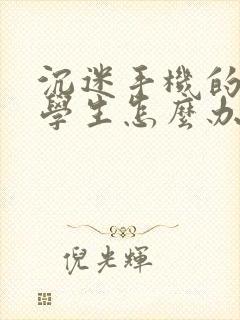 沉迷手機的
學生怎麼办
倪光輝